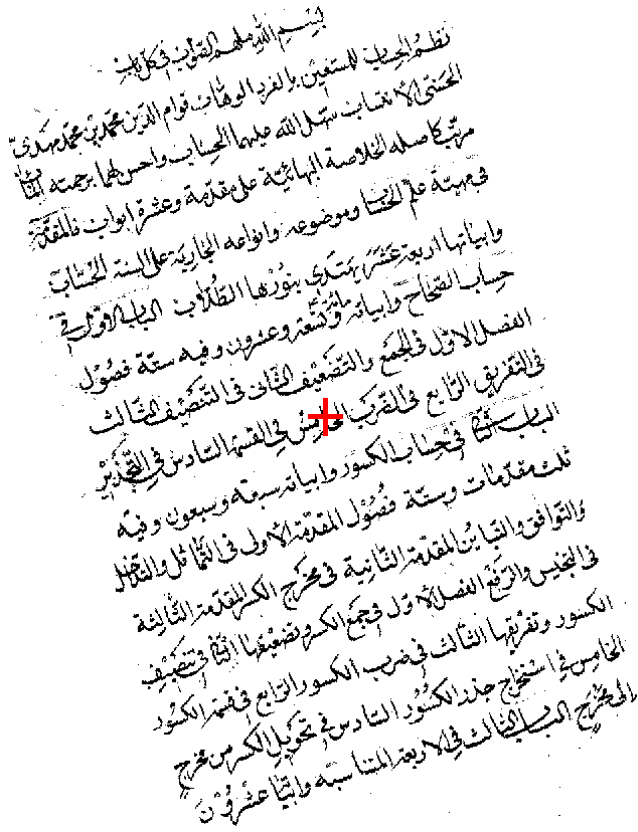 بسم الله ملهم الصواب فی کل باب
نظم الحساب للمستعین بالفرد الوهاب قوام الدین محمد بن محمد مهدی
الحسنی الانتساب سهل الله علیهما الحساب واحسن لهما برحمته المآب
مرتب کاصله الخلاصة البهائیة علی مقدمة وعشرة ابواب فالمقدمة
فی مهیة علم الحساب وموضوعه وانواعه الجاریة علی السنة الحساب
وابیاتها اربعة عشر یهتدی بنورها الطلاب الباب الاول فی
حساب الصحاح وابیاته مائة وتسعة وعشرون وفیه ستة فصول
الفصل الاول فی الجمع والتضعیف الثانی فی التنصیف الثالث
فی التفریق الرابع فی الضرب الخامس فی القسمة السادس فی التجذیر
الباب الثانی فی حساب الکسور وابیاته سبعة وسبعون وفیه
ثلث مقدمات وستة فصول المقدمة الاولی فی التماثل والتداخل
والتوافق والتباین المقدمة الثانیة فی مخرج الکسر المقدمة الثالثة
فی التجنیس والرفع الفصل الاول فی جمع الکسر وتضعیفها الثانی فی تنصیف
الکسور وتفریقها الثالث فی ضرب الکسور الرابع فی قسمة الکسور
الخامس فی استخراج جذر الکسور السادس فی تحویل الکسر من مخرج
الی مخرج الباب الثالث فی الاربعة المتناسبة وابیاتها عشرون